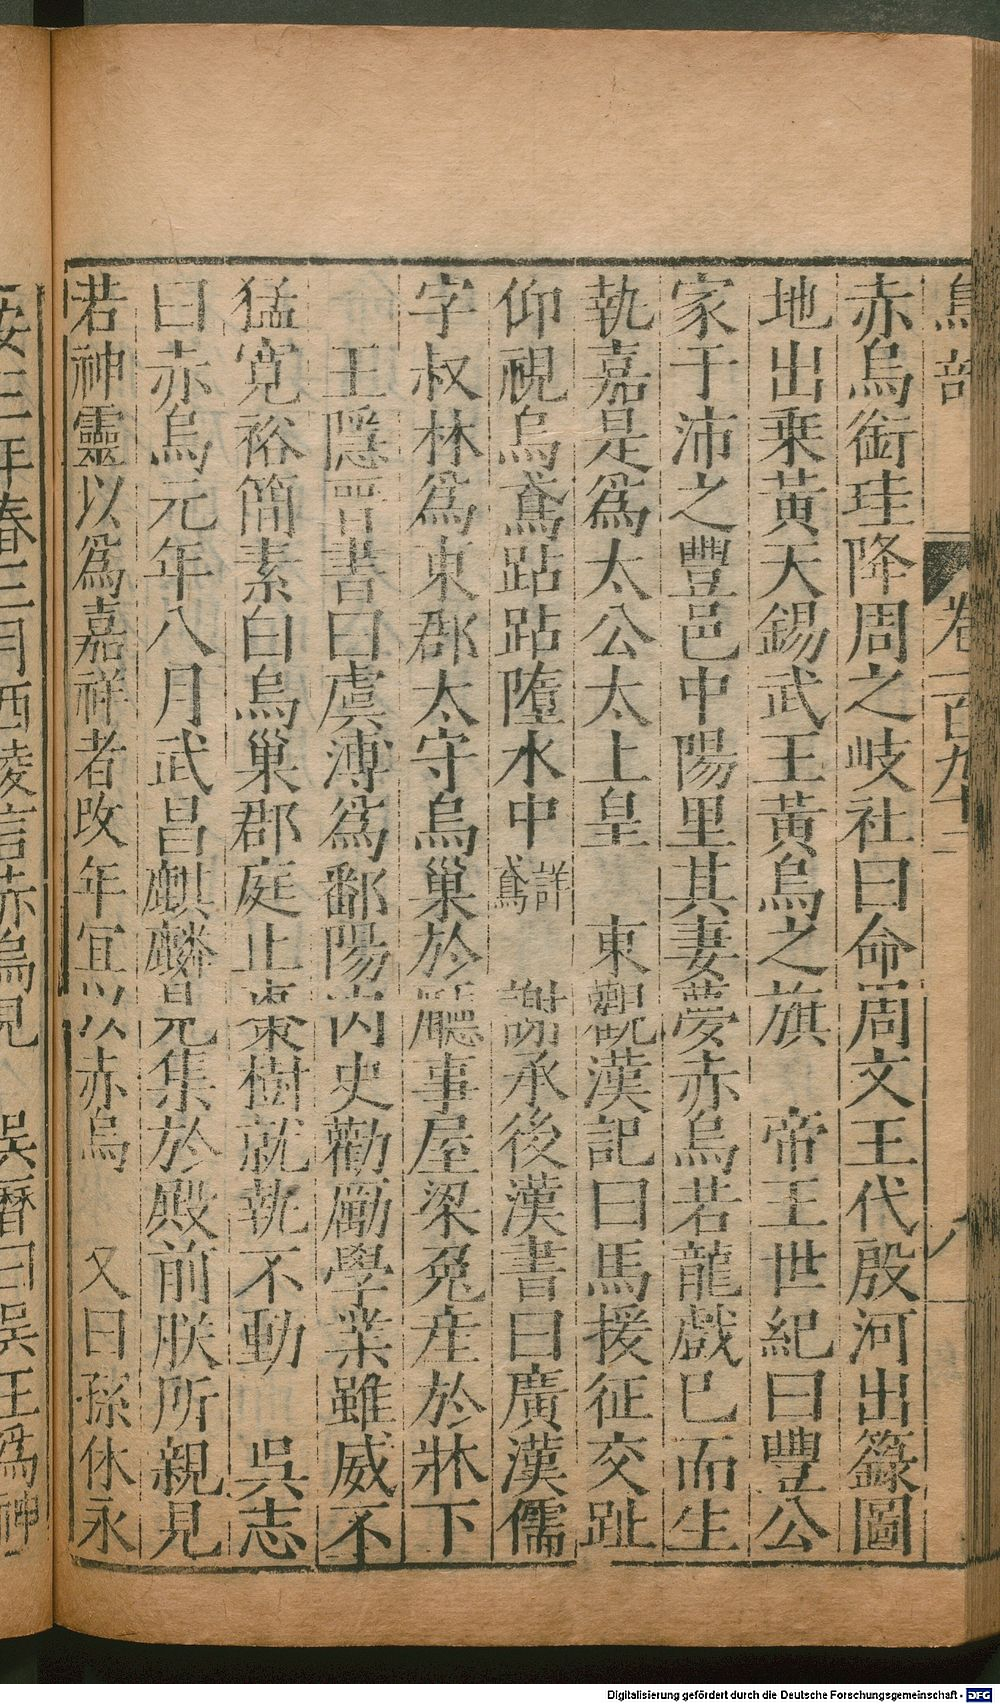 鳥部　卷一百九十二　八
赤烏銜珪降周之岐社曰命周文王代殷河出籙圖
地出乗黃天錫武王黃烏之旗　帝王世紀曰豐公
家于沛之豐邑中陽里其妻夢赤烏若龍戲已而生
執嘉是爲太公太上皇　東觀漢記曰馬援征交趾
仰視烏鳶跕跕墮水中詳鳶　謝承後漢書曰廣漢儒
字叔林爲東郡太守烏巢於廳事屋梁兔産於牀下
王隱晉書曰虞溥爲鄱陽內史勸勵學業雖威不
猛寛裕簡素白烏巢郡庭止棗樹就執不動　吳志
曰赤烏元年八月武昌麒麟見集於殿前朕所親見
若神靈以爲嘉祥者改年冝以赤烏　又曰孫休永
安三年春三月西陵言赤烏見　吳曆曰吳王爲神
Digitalisierung gefördert durch die Deutsche Forschungsgemeinschaft - DFG